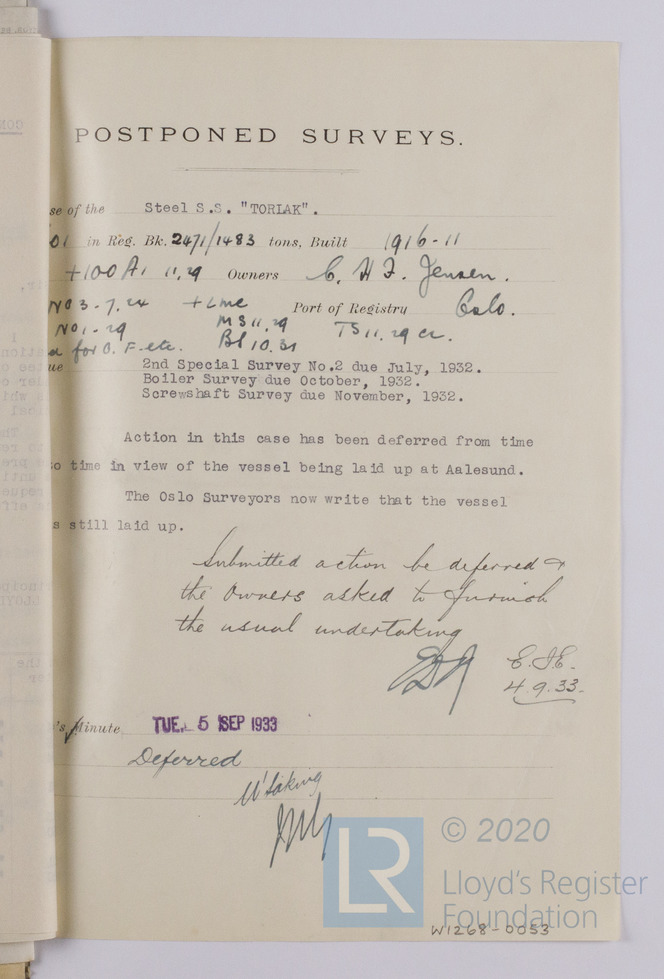 POSTPONED SURVEYS.
se of the Steel S.S. "TORLAK".
01 in Reg. Bk. 2471/1483 tons, Built 1916-11
+100A1 11,29 Owners C. H. F. Jensen.
No 3-7.24 +LMC Port of Registry Oslo.
No 1-29 MS 11,29 TS 11.29 CL.
for O. F. etc. BL 10.31
ue 2nd Special Survey No.2 due July, 1932.
Boiler Survey due October, 1932.
Screwshaft Survey due November, 1932.
Action in this case has been deferred from time
o time in view of the vessel being laid up at Aalesund.
The Oslo Surveyors now write that the vessel
s still laid up.
Submitted action be deferred &
the Owners asked to furnish
the usual undertaking
4.9.33.
's Minute TUE. 5 SEP 1933
Deferred
U'taking
LR
© 2020
Lloyd's Register
Foundation
W1268-0053